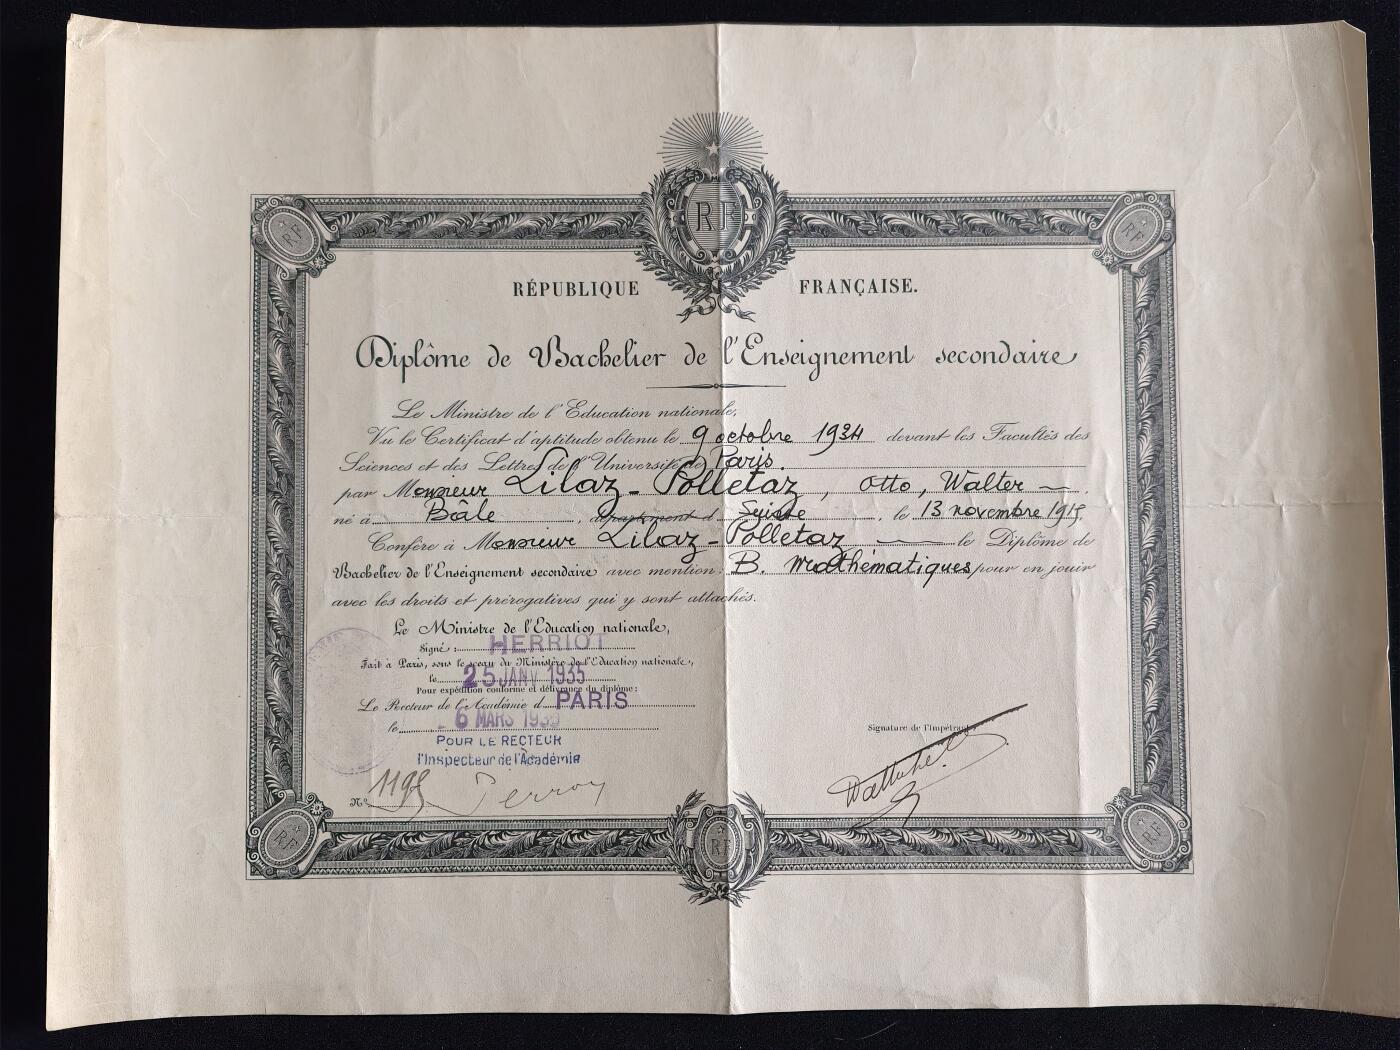 RF
RF
RF
RÉPUBLIQUE FRANÇAISE.
Diplôme de Bachelier de l'Enseignement secondaire
Le Ministre de l'Education nationale,
Vu le Certificat d'aptitude obtenu le 9 octobre 1934 devant les Facultés des
Sciences et des Lettres de l'Université de Paris.
par Monsieur Lilaz-Polletaz, Otto, Walter
né à Bâle, département d Suisse, le 13 novembre 1915
Confère à Monsieur Lilaz-Polletaz le Diplôme de
Bachelier de l'Enseignement secondaire avec mention: B. mathématiques pour en jouir
avec les droits et prérogatives qui y sont attachés.
Le Ministre de l'Education nationale,
Signé: HERRIOT
Fait à Paris, sous le sceau du Ministère de l'Education nationale,
le 25 JANV 1935
Pour expédition conforme et délivrance du diplôme:
Le Recteur de l'Académie d PARIS
le - 6 MARS 1935
POUR LE RECTEUR
l'Inspecteur de l'Académie
Signature de l'Impétrant
Nº 1195
RF
RF
RF